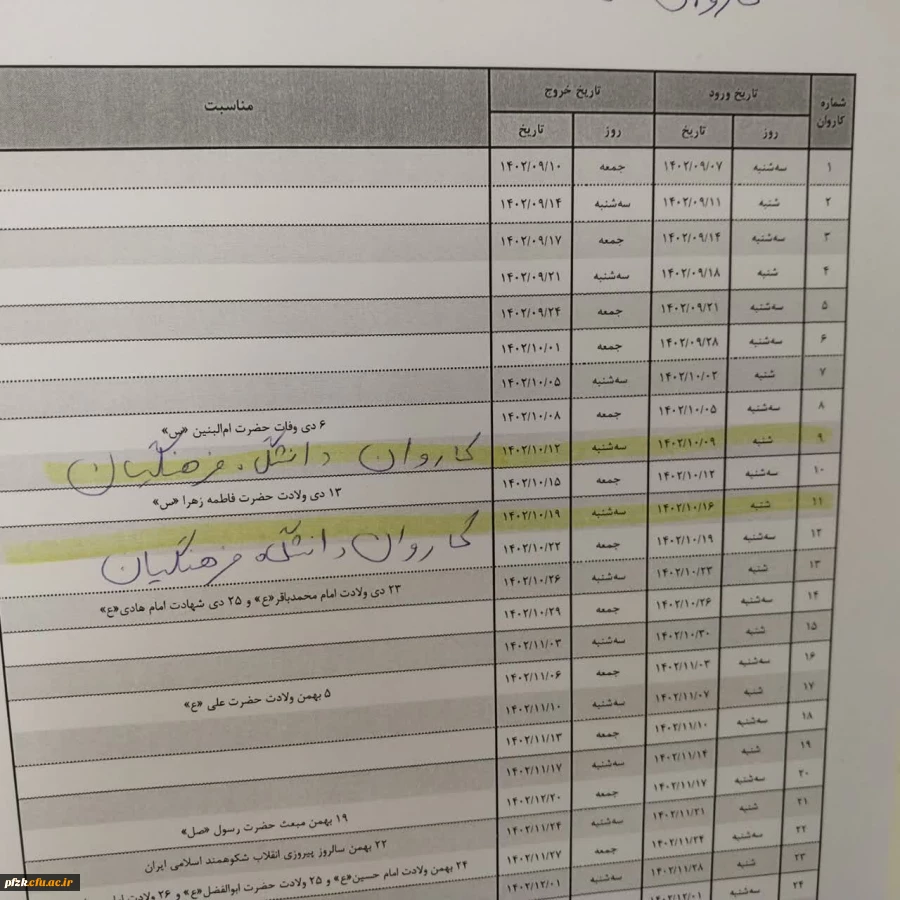 کاروان
شماره کاروان | تاریخ ورود | تاریخ خروج | مناسبت
روز | تاریخ | روز | تاریخ
۱ | سه‌شنبه | ۱۴۰۲/۰۹/۰۷ | جمعه | ۱۴۰۲/۰۹/۱۰
۲ | شنبه | ۱۴۰۲/۰۹/۱۱ | سه‌شنبه | ۱۴۰۲/۰۹/۱۴
۳ | سه‌شنبه | ۱۴۰۲/۰۹/۱۴ | جمعه | ۱۴۰۲/۰۹/۱۷
۴ | شنبه | ۱۴۰۲/۰۹/۱۸ | سه‌شنبه | ۱۴۰۲/۰۹/۲۱
۵ | سه‌شنبه | ۱۴۰۲/۰۹/۲۱ | جمعه | ۱۴۰۲/۰۹/۲۴
۶ | سه‌شنبه | ۱۴۰۲/۰۹/۲۸ | جمعه | ۱۴۰۲/۱۰/۰۱
۷ | شنبه | ۱۴۰۲/۱۰/۰۲ | سه‌شنبه | ۱۴۰۲/۱۰/۰۵
۸ | سه‌شنبه | ۱۴۰۲/۱۰/۰۵ | جمعه | ۱۴۰۲/۱۰/۰۸ | ۶ دی وفات حضرت ام‌البنین «س»
۹ | شنبه | ۱۴۰۲/۱۰/۰۹ | سه‌شنبه | ۱۴۰۲/۱۰/۱۲ | کاروان دانشگاه فرهنگیان
۱۰ | سه‌شنبه | ۱۴۰۲/۱۰/۱۲ | جمعه | ۱۴۰۲/۱۰/۱۵ | ۱۳ دی ولادت حضرت فاطمه زهرا «س»
۱۱ | شنبه | ۱۴۰۲/۱۰/۱۶ | سه‌شنبه | ۱۴۰۲/۱۰/۱۹ | کاروان دانشگاه فرهنگیان
۱۲ | سه‌شنبه | ۱۴۰۲/۱۰/۱۹ | جمعه | ۱۴۰۲/۱۰/۲۲
۱۳ | شنبه | ۱۴۰۲/۱۰/۲۳ | سه‌شنبه | ۱۴۰۲/۱۰/۲۶ | ۲۳ دی ولادت امام محمدباقر«ع» و ۲۵ دی شهادت امام هادی«ع»
۱۴ | سه‌شنبه | ۱۴۰۲/۱۰/۲۶ | جمعه | ۱۴۰۲/۱۰/۲۹
۱۵ | شنبه | ۱۴۰۲/۱۰/۳۰ | سه‌شنبه | ۱۴۰۲/۱۱/۰۳
۱۶ | سه‌شنبه | ۱۴۰۲/۱۱/۰۳ | جمعه | ۱۴۰۲/۱۱/۰۶ | ۵ بهمن ولادت حضرت علی «ع»
۱۷ | شنبه | ۱۴۰۲/۱۱/۰۷ | سه‌شنبه | ۱۴۰۲/۱۱/۱۰
۱۸ | سه‌شنبه | ۱۴۰۲/۱۱/۱۰ | جمعه | ۱۴۰۲/۱۱/۱۳
۱۹ | شنبه | ۱۴۰۲/۱۱/۱۴ | سه‌شنبه | ۱۴۰۲/۱۱/۱۷
۲۰ | سه‌شنبه | ۱۴۰۲/۱۱/۱۷ | جمعه | ۱۴۰۲/۱۲/۲۰ | ۱۹ بهمن مبعث حضرت رسول «صل»
۲۱ | شنبه | ۱۴۰۲/۱۱/۲۱ | سه‌شنبه | ۱۴۰۲/۱۱/۲۴ | ۲۲ بهمن سالروز پیروزی انقلاب شکوهمند اسلامی ایران
۲۲ | سه‌شنبه | ۱۴۰۲/۱۱/۲۴ | جمعه | ۱۴۰۲/۱۱/۲۷ | ۲۴ بهمن ولادت امام حسین«ع» و ۲۵ ولادت حضرت ابوالفضل«ع» و ۲۶ ولادت امام
۲۳ | شنبه | ۱۴۰۲/۱۱/۲۸ | سه‌شنبه | ۱۴۰۲/۱۲/۰۱
۲۴ | سه‌شنبه | ۱۴۰۲/۱۲/۰۱
pfzk.cfu.ac.ir